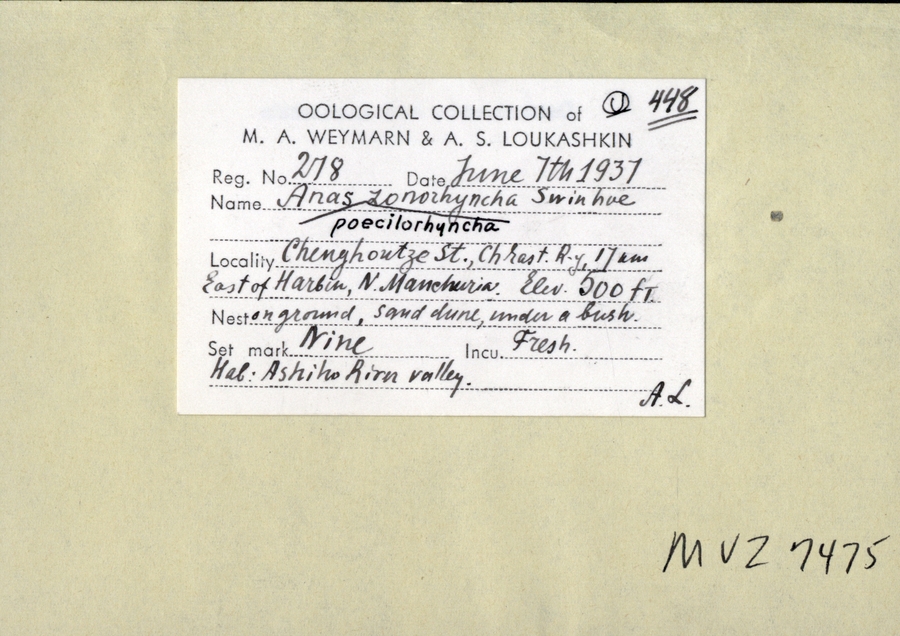 OOLOGICAL COLLECTION of 448
M. A. WEYMARN & A. S. LOUKASHKIN
Reg. No. 278 Date June 7th 1937
Name Anas zonorhyncha Swinhoe
poecilorhyncha
Locality Chenghoutze St., Ch East. R-y, 17 km
East of Harbin, N. Manchuria. Elev. 500 ft.
Nest on ground, sand dune, under a bush.
Set mark Nine Incu. Fresh.
Hab: Ashiho River valley.
A. L.
MVZ 7475